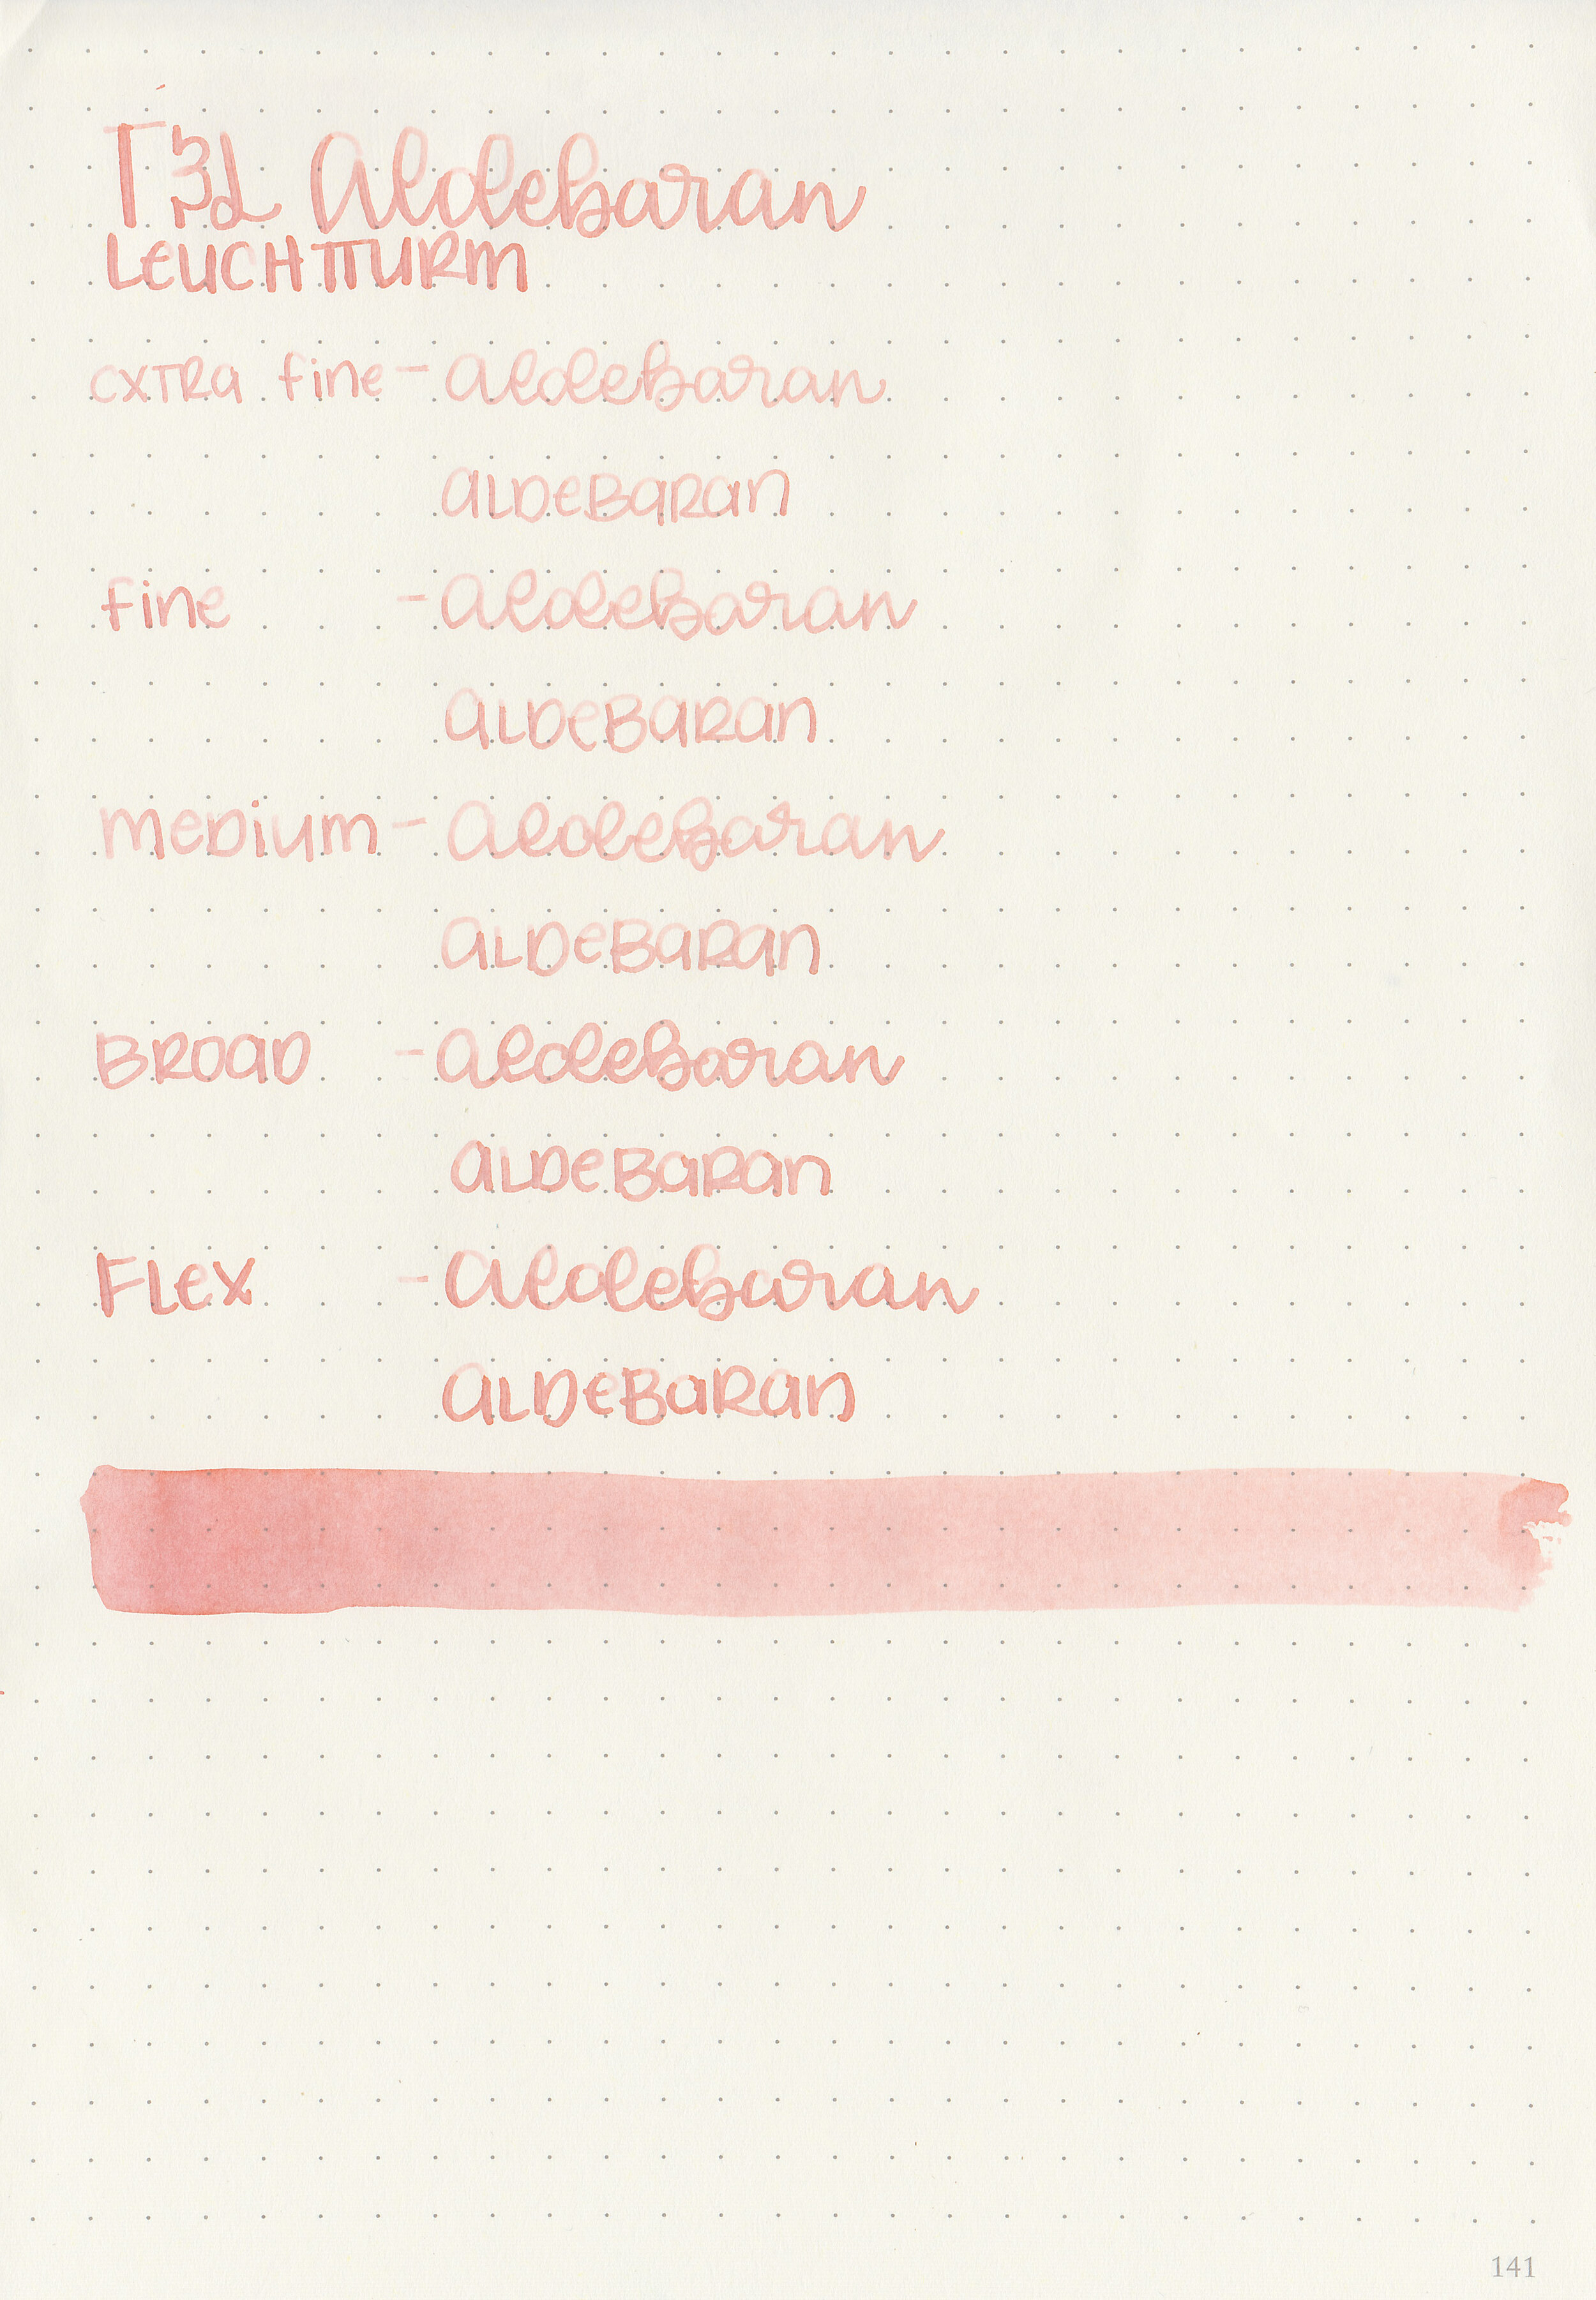 T & L Aldebaran
LEUCHTTURM
EXTRA fine - Aldebaran
ALDEBARAN
fine - Aldebaran
ALDEBARAN
MEDIUM - Aldebaran
ALDEBARAN
BROAD - Aldebaran
ALDEBARAN
FLEX - Aldebaran
ALDEBARAN
141